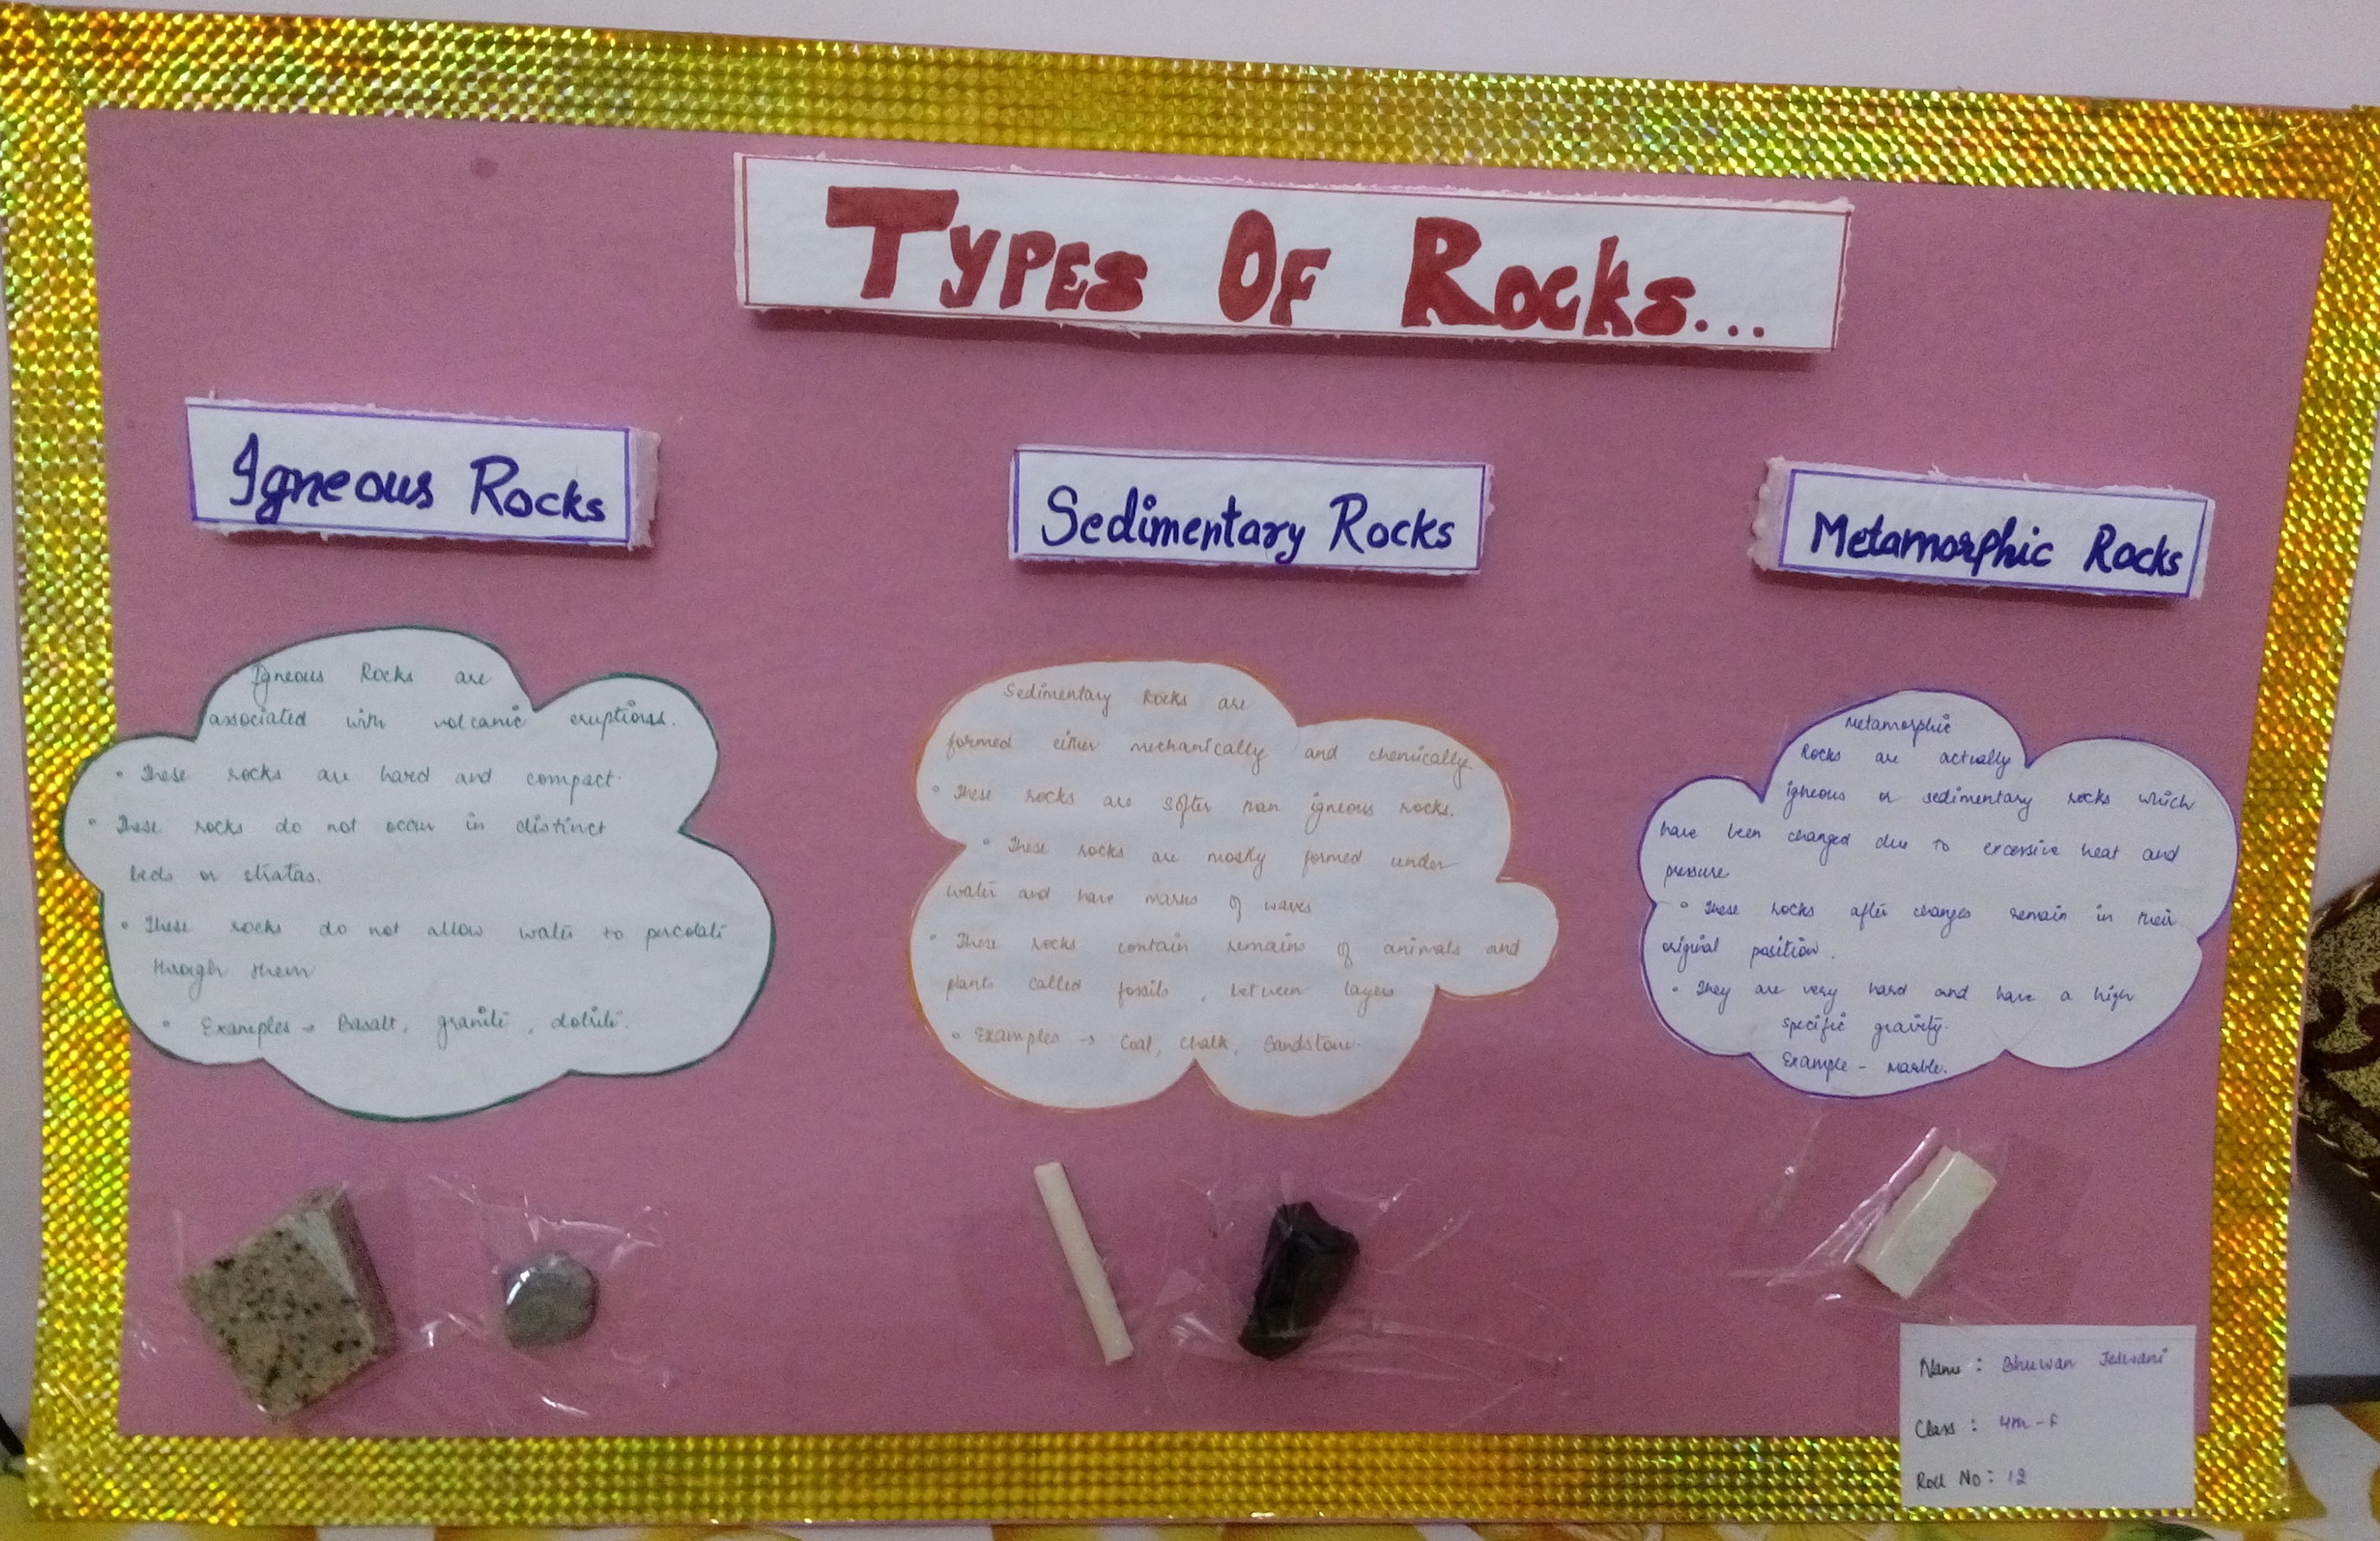 TYPES OF ROCKS...
Igneous Rocks
Igneous Rocks are
associated with volcanic eruptions.
• These rocks are hard and compact.
• These rocks do not occur in distinct
beds or stratas.
• These rocks do not allow water to percolate
through them
• Examples → Basalt, granite, dolrite.
Sedimentary Rocks
Sedimentary Rocks are
formed either mechanically and chemically
• These rocks are softer than igneous rocks.
• These rocks are mostly formed under
water and have marks of waves
• These rocks contain remains of animals and
plants called fossils, between layers
• Examples → Coal, Chalk, Sandstone.
Metamorphic Rocks
Metamorphic
Rocks are actually
igneous or sedimentary rocks which
have been changed due to excessive heat and
pressure
• These rocks after changes remain in their
original position.
• They are very hard and have a high
specific gravity.
Example - Marble.
Name : Bhuwan Jeswani
Class : 4th-F
Roll No : 12